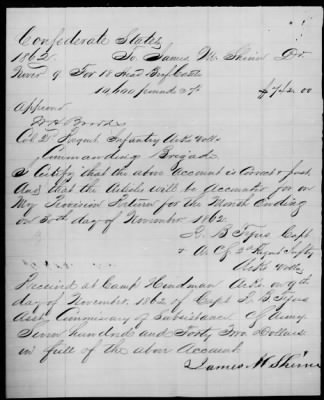 Confederate States
1862 To James M. Shinn Dr.
Nover 9 For 18 Head Beef Cattle
10,600 pounds 7¢ $742 00
Approved
Col 2d Regmt Infantry Arks Vols
Commanding Brigade
I Certify that the above account is Correct & just
And that the Articles will be accounted for on
My Provision Return for the Month Ending
on 30th day of November 1862
Capt
& A. C. S 2d Regmt Infty
Arks Vols
Received at Camp Hindman Arks on 9th
day of November 1862 of Capt
Asst Commissary of Subsistence CS Army
Seven hundred and Forty Two Dollars
in full of the above Account
James M Shinn